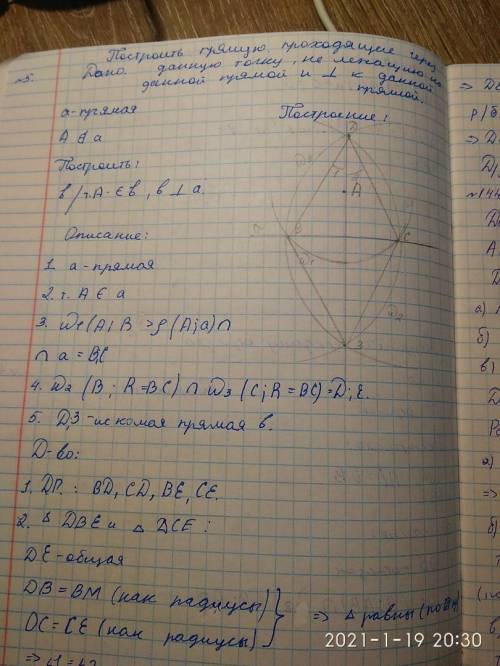 Построить прямую, проходящие через
№5. Дано. данную точку, не лежащую на
данной прямой и ⊥ к данной
прямой.
а-прямая
A ∉ a
Построение:
Построить:
в/т.А ∈ в, в ⊥ а.
Описание:
1. а-прямая
2. т. А ∈ а
3. ω₁(A; R > ρ(A; a) ∩
∩ a = B; C
4. ω₂ (B; R=BC) ∩ ω₃ (C; R=BC) = D; E.
5. D;Э-искомая прямая в.
Д-во:
1. ДП.: BD, CD, BE, CE.
2. △ DBE и △ DCE:
DE-общая
DB = BM (как радиусы)
DC = CE (как радиусы)
⇒ △ равны (по
⇒ ∠1 = ∠2
D
A
B
C
Э
ω₂
2021-1-19 20:30
⇒
р/б
⇒ D
№144
а)
б)
в)
а)
⇒
б)